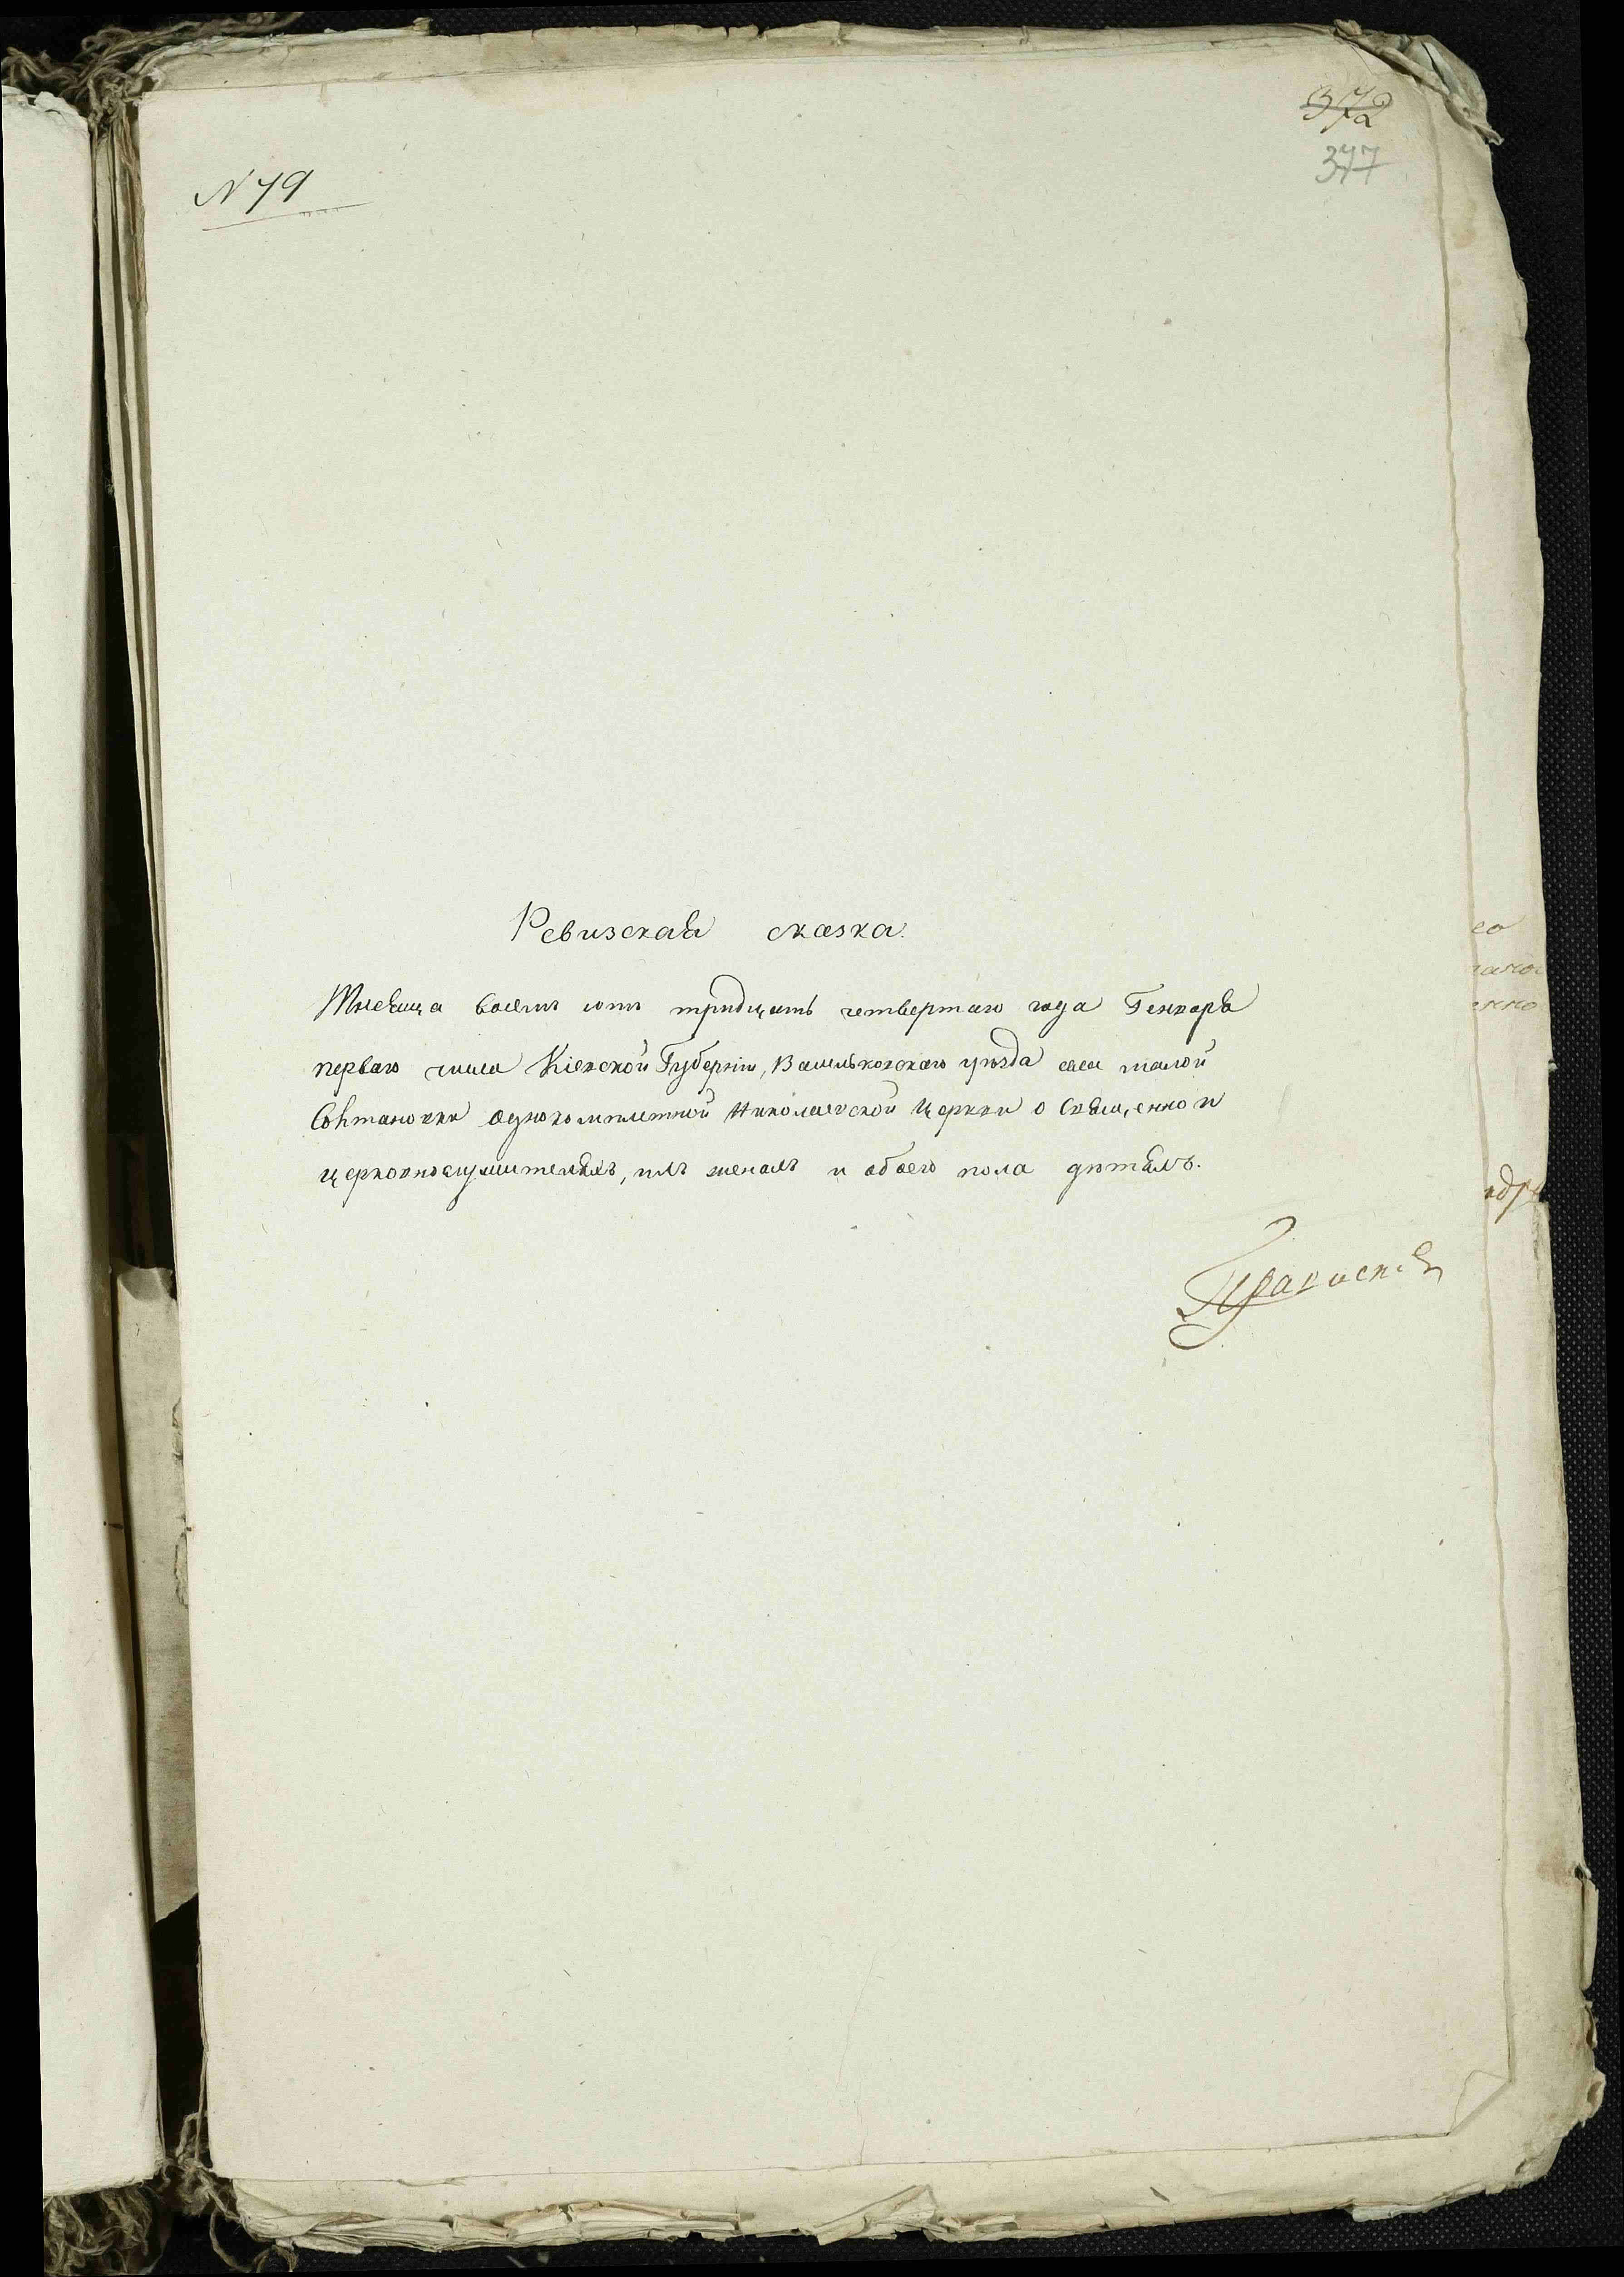 372
377
N 79
Ревизская сказка.
Тысяща восемь сотъ тридцать четвертаго года Генваря
перваго числа Кіевской Губерніи, Васильковского уѣзда села малой
Солтановки однокомплетной Николаевской Церкви о Священно и
церковнослужителяхъ, ихъ женахъ и обоего пола дѣтяхъ.